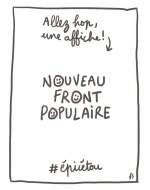 Allez hop,
une affiche!
NOUVEAU
FRONT
POPULAIRE
#épicétou